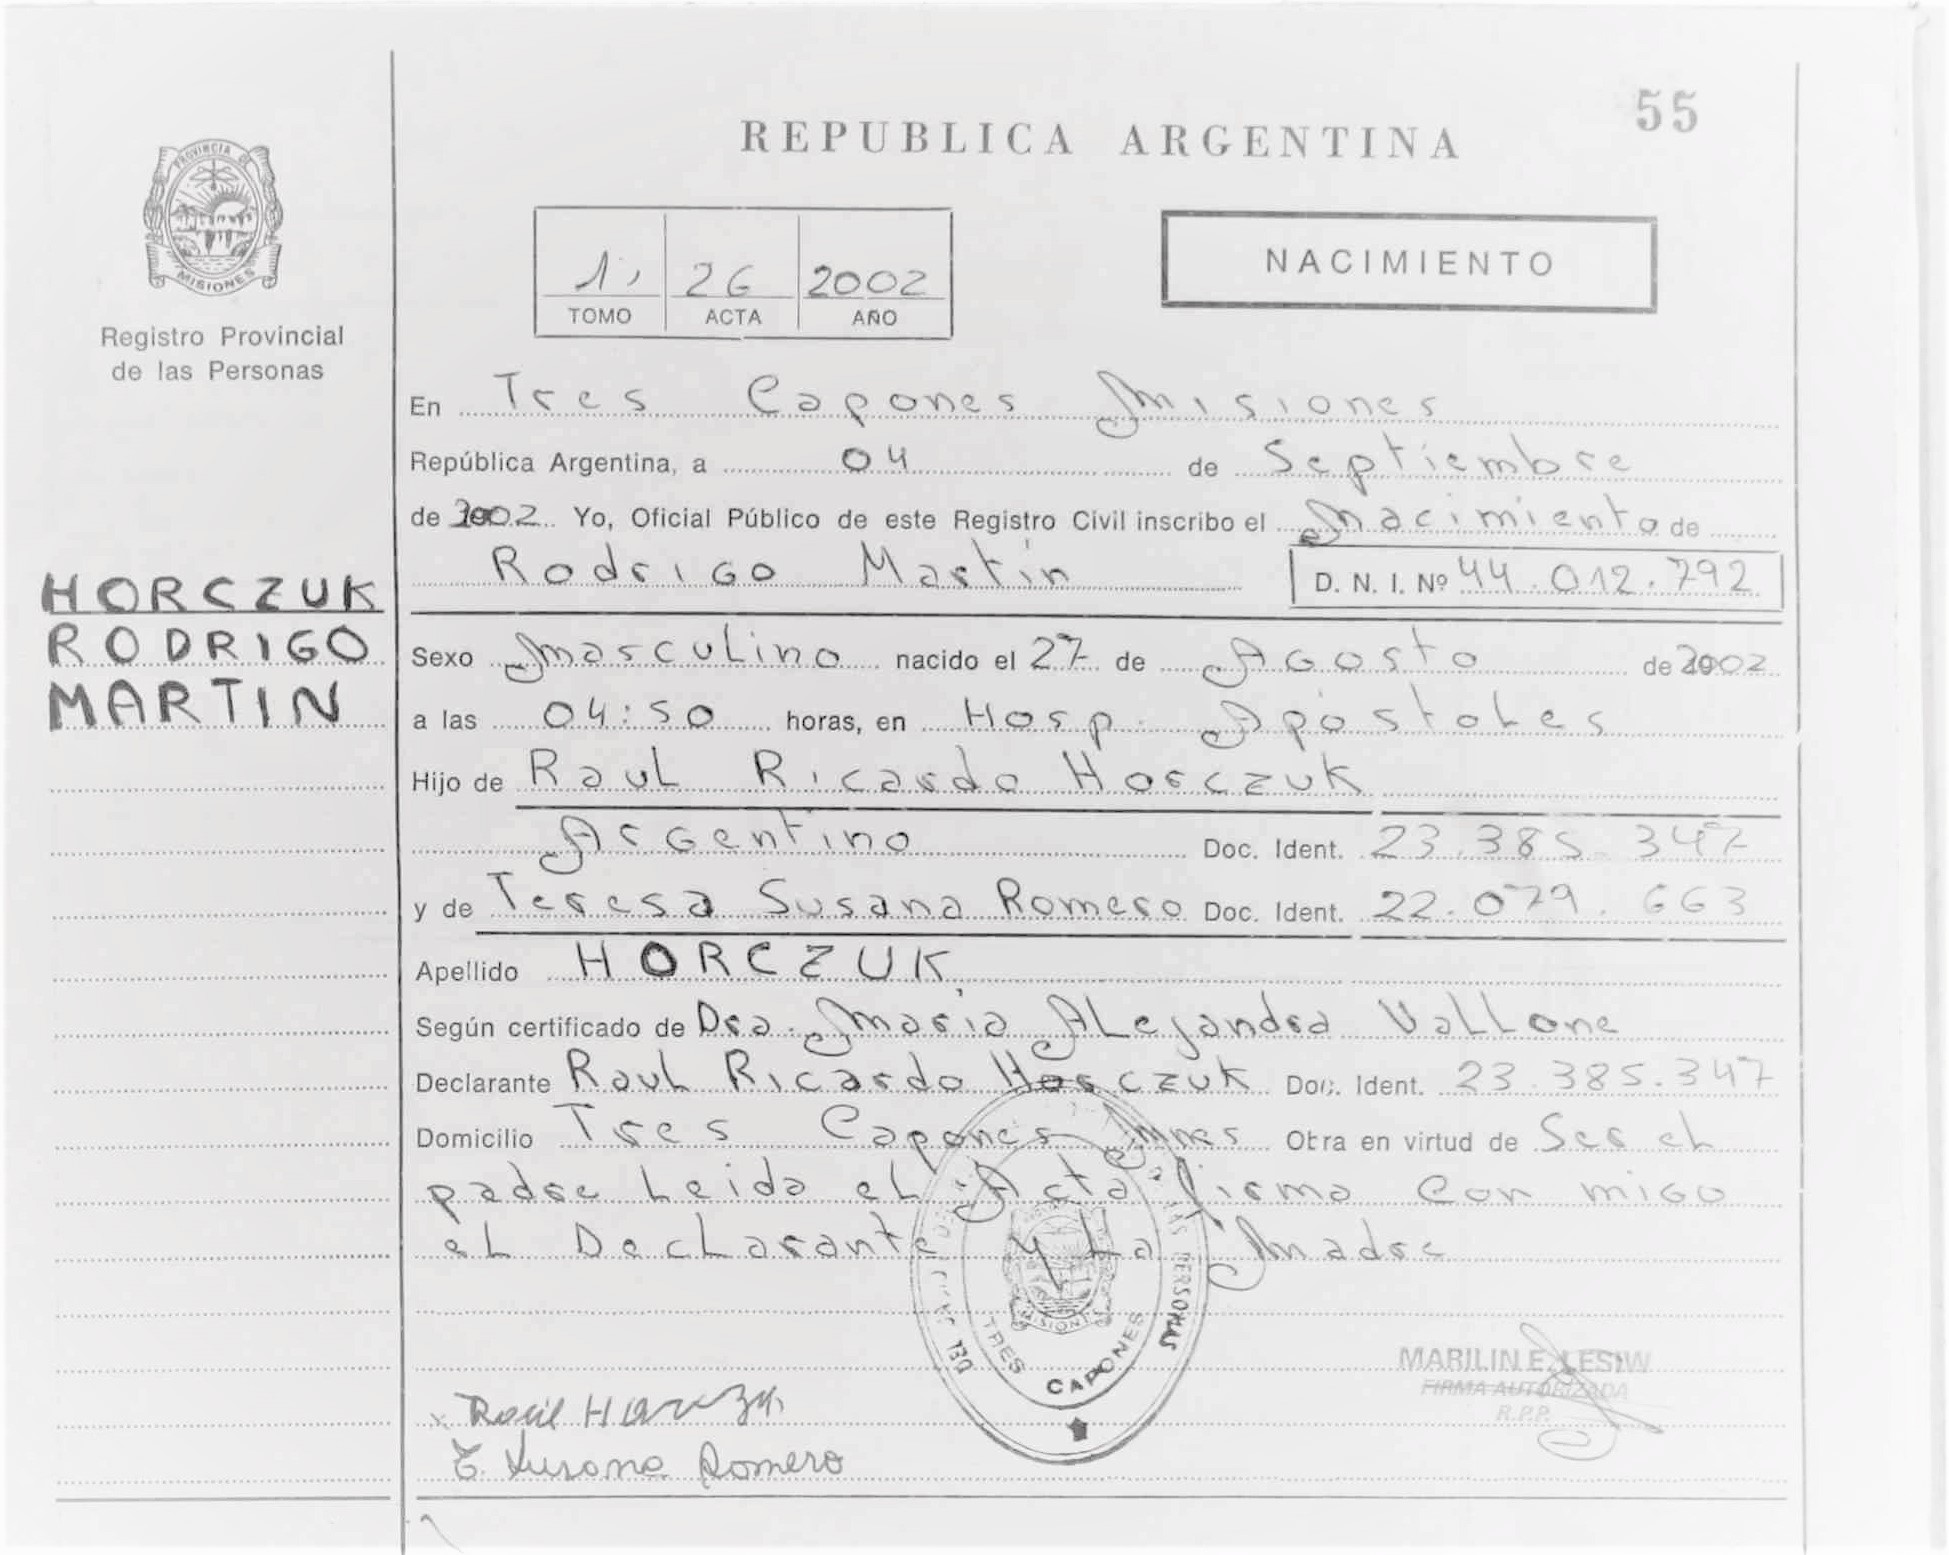 55
REPUBLICA ARGENTINA
PROVINCIA DE
MISIONES
Registro Provincial
de las Personas
1, 26 2002
TOMO ACTA AÑO
NACIMIENTO
En Tres Capones Misiones
República Argentina, a 04 de Septiembre
de 2002 Yo, Oficial Público de este Registro Civil inscribo el Nacimiento de
Rodrigo Martin D. N. I. Nº 44.012.792
HORCZUK
RODRIGO
MARTIN
Sexo Masculino nacido el 27 de Agosto de 2002
a las 04:50 horas, en Hosp. Apóstoles
Hijo de Raul Ricardo Horczuk
Argentino Doc. Ident. 23.385.347
y de Teresa Susana Romero Doc. Ident. 22.079.663
Apellido HORCZUK
Según certificado de Dra. Maria Alejandra Vallone
Declarante Raul Ricardo Horczuk Doc. Ident. 23.385.347
Domicilio Tres Capones Mnes Obra en virtud de Ser el
padre Leida el Acta firma con migo
el Declarante y La Madre
LAS PERSONAS
MISIONES
TRES CAPONES
MARILIN E. LESIW
FIRMA AUTORIZADA
R.P.P.
Raúl
T. Susana Romero